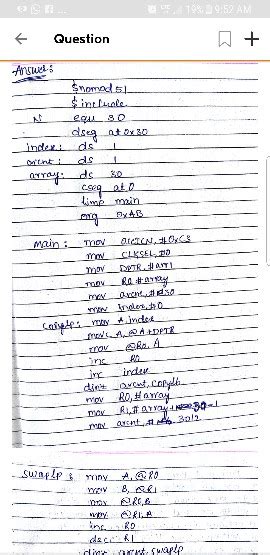 19% 9:52 AM
Question
Answer:
$nomod51
$include
N equ 30
dseg at 0x30
index: ds 1
arcnt: ds 1
array: ds 30
cseg at 0
ljmp main
org 0xAB
main: mov OSCICN, #0xC3
mov CLKSEL, #0
mov DPTR, #arr1
mov R0, #array
mov arcnt, #30
mov index, #0
mov A, index
movc A, @A+DPTR
mov @R0, A
inc R0
inc index
djnz arcnt, copylp
mov R0, #array
mov R1, #array+30-1
mov arcnt, # 30/2
swaplp: mov A, @R0
mov B, @R1
mov @R0, B
mov @R1, A
inc R0
dec R1
djnz arcnt, swaplp